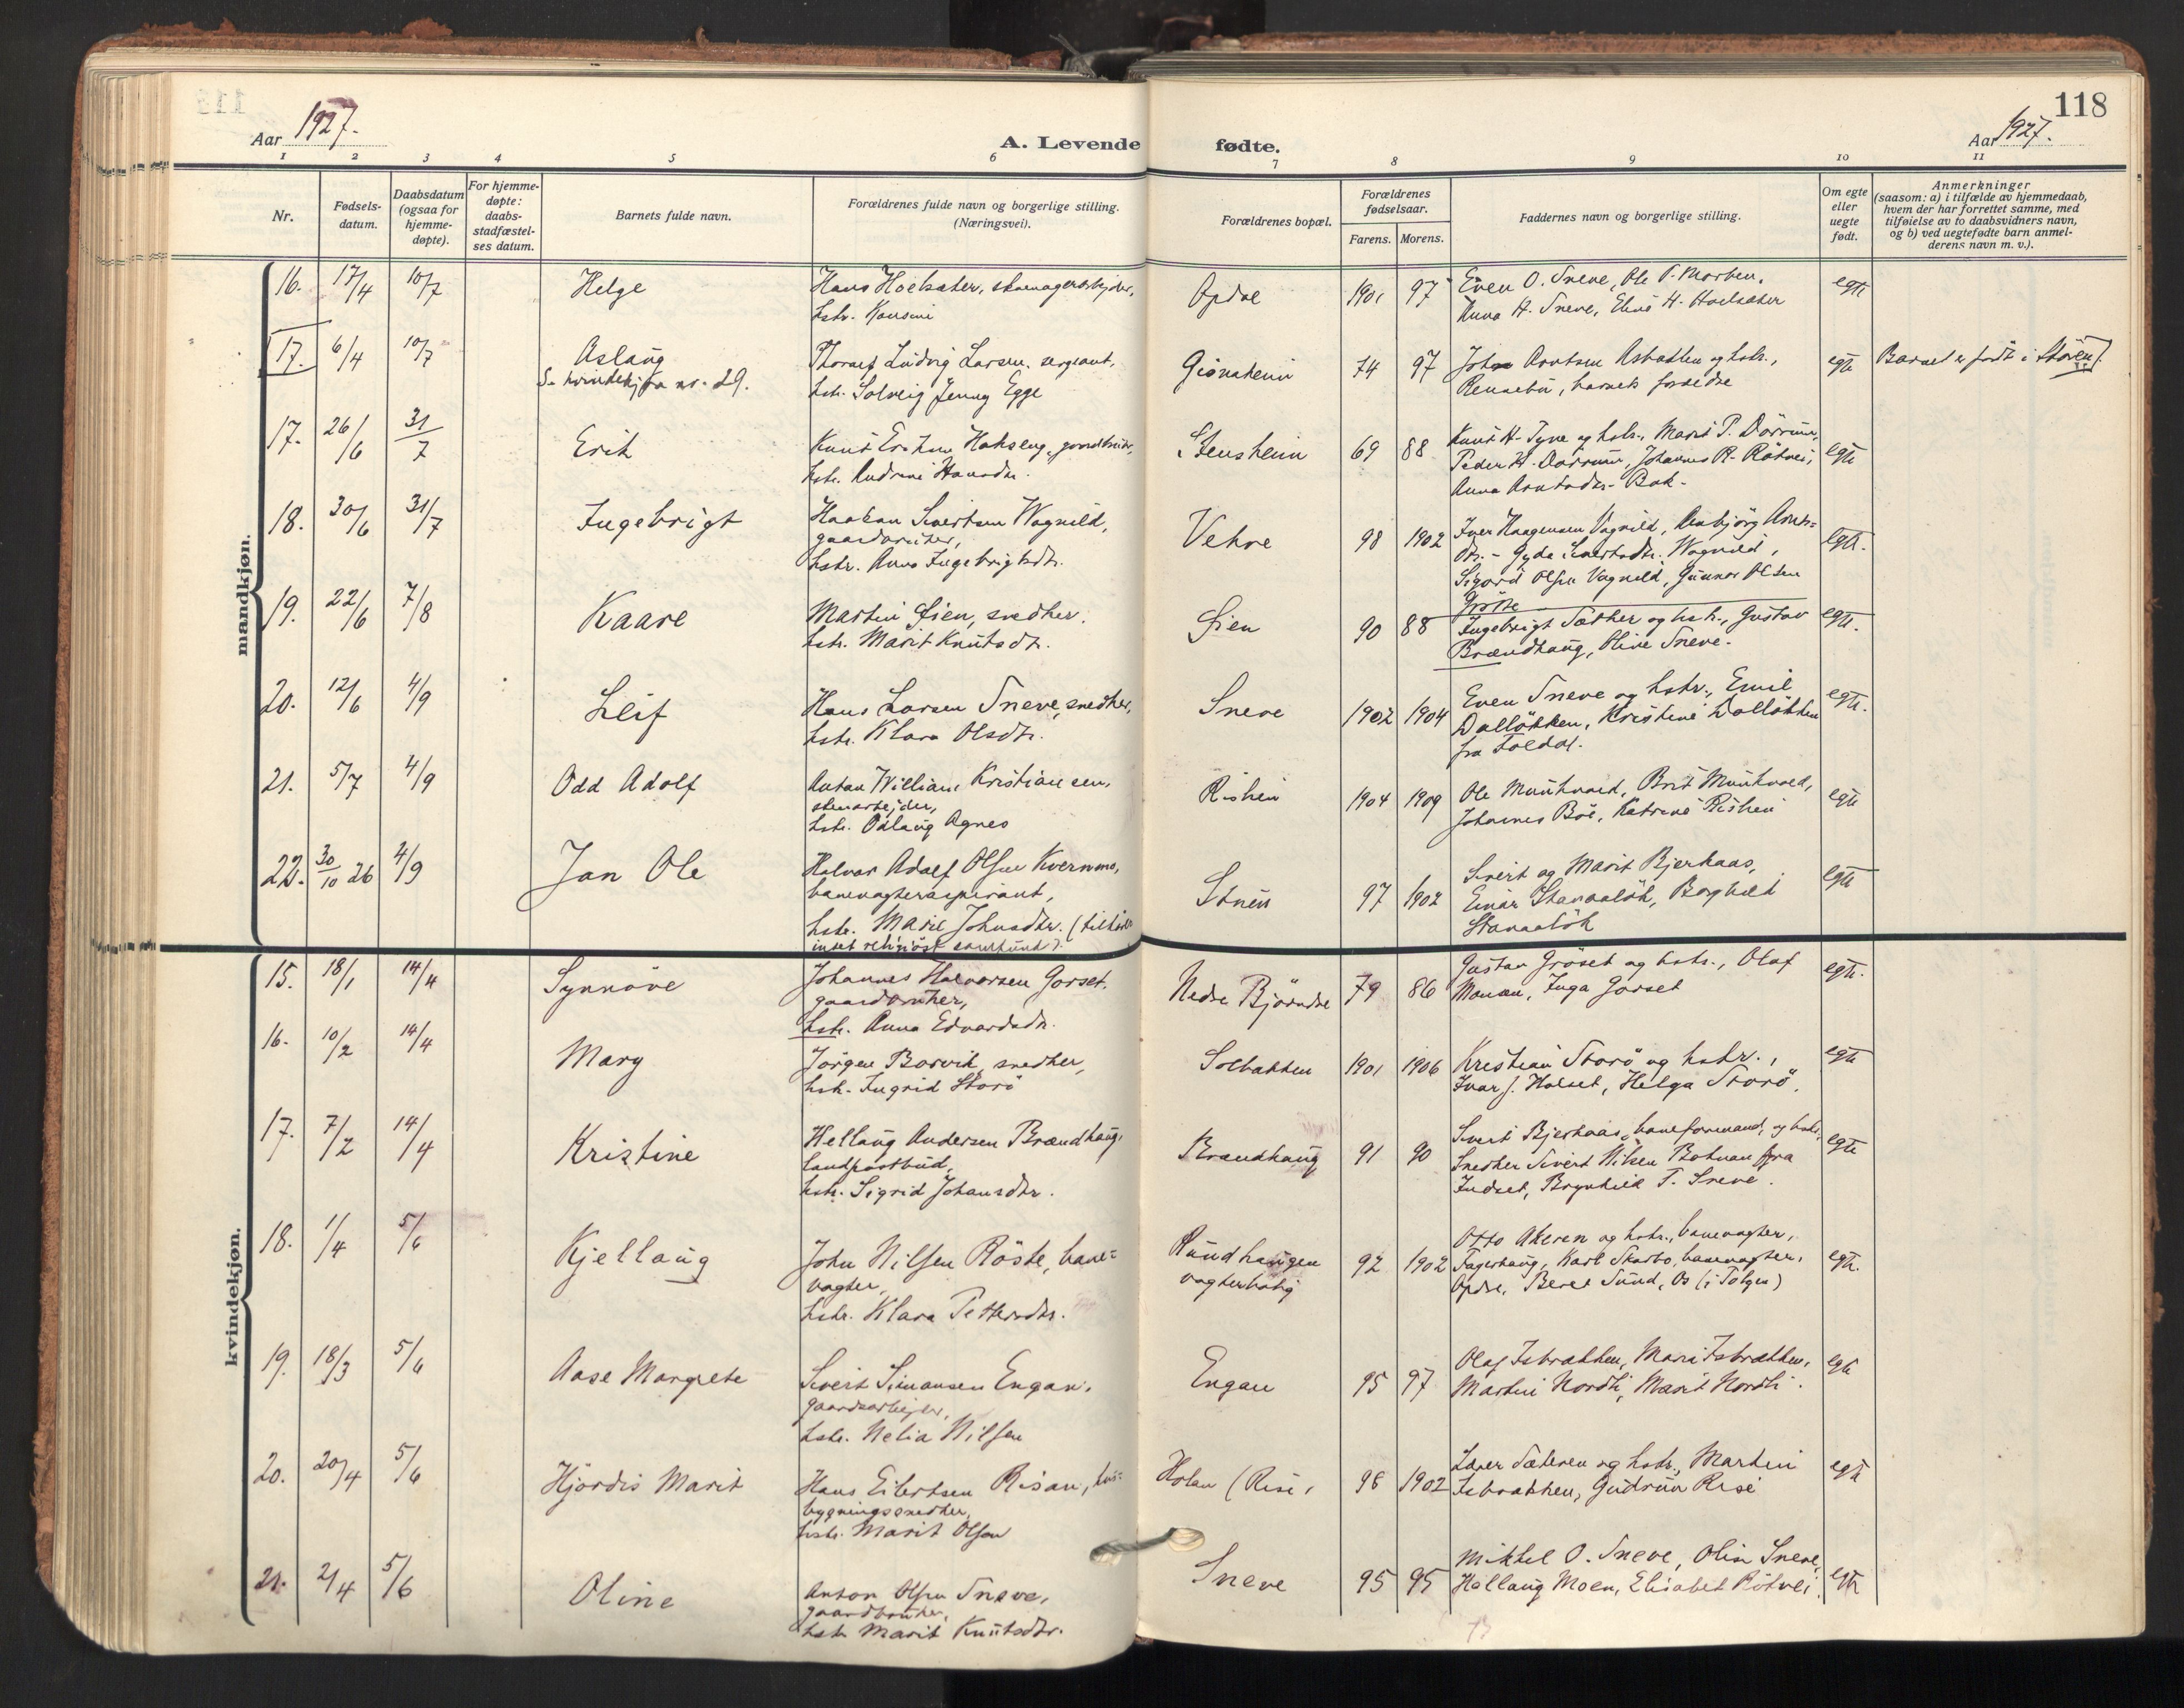 118
Aar 1927.
A. Levende fødte.
Aar 1927.
1 2 3 4 5 6 7 8 9 10 11
Nr.
Fødselsdatum.
Daabsdatum (ogsaa for hjemmedøpte).
For hjemmedøpte: daabsstadfæstelses datum.
Barnets fulde navn.
Forældrenes fulde navn og borgerlige stilling.
(Næringsvei).
Forældrenes bopæl.
Forældrenes fødselsaar.
Farens. Morens.
Faddernes navn og borgerlige stilling.
Om egte eller uegte født.
Anmerkninger
(saasom: a) i tilfælde av hjemmedaab,
hvem der har forrettet samme, med
tilføielse av to daabsvidners navn,
og b) ved uegtefødte barn anmel-
derens navn m. v.).
mandkjøn.
16. 17/4 10/7 Helge
Hans Hoelsæter,
hstr.
Opdal 1901 97
Even O. Sneve, Ole P.
Anna H. Sneve, H. Hoelsæter
egte
17. 6/4 10/7 Aslaug
S. kvindekj. nr. 29.
Thoralf Ludvig Larsen, sergeant,
hstr. Solveig Jenny Egge
74 97
John Arntsen og hstr.,
Rennebu, barnets forældre
egte
Barnet er født i Støren.
17. 26/6 31/7 Erik
Knut Hokseng,
hstr. Hansdtr.
Stensheim 69 88
Knut H. og hstr., Marit P. Dörrum,
Peder H. Dörrum, Johannes R.
Anna Arntsdtr. Bak.
egte
18. 30/6 31/7 Ingebrigt
Haakon Sivertsen Wognild,
gaardbruker,
hstr. Anne Ingebrigtsdtr.
98 1902
Iver Haagensen Vognild,
dtr. - Gyda Sivertsdtr. Wognild,
Sigurd Olsen Vognild, Gunnar Olsen
egte.
19. 22/6 7/8 Kaare
Martin Lien, snedker.
hstr. Marit Knutsdtr.
Lien 90 88
Ingebrigt Sæther og hstr., Gustav
Brændhaug, Oline Sneve.
egte.
20. 12/6 4/9 Leif
Hans Larsen Sneve, snedker,
hstr. Klara Olsdtr.
Sneve 1902 1904
Even Sneve og hstr., Emil
Dalløkken, Kristine Dalløkken
fra Foldal.
egte.
21. 5/7 4/9 Odd Adolf
Anton William Kristiansen,
stenarbejder,
hstr. Oslaug Agnes
Rishei 1904 1909
Ole Munkvold, Brit Munkvold,
Johannes Böe, Katrine Rishei
egte
22. 30/10 26 4/9 Jan Ole
Halvor Adolf Olsen Kvernmo,
banevogteraspirant,
hstr. Marie Johnsdtr. (tilhører
intet religiöst samfund).
Stuen 97 1902
Sivert og Marit Bjerkaas,
Einar Stavaaløk, Borghild
Stavaaløk
egte
kvindekjøn.
15. 18/1 14/4 Synnöve
Johannes Halvorsen Gorset,
gaardbruker,
hstr. Anna Edvardsdtr.
Nedre Bjørndal 79 86
Gustav Gröset og hstr., Olaf
Inga Gorset
egte.
16. 10/2 14/4 Mary
Jörgen Borvik, snedker,
hstr. Ingrid Storö
Solbakken 1901 1906
Kristian Storö og hstr.,
Ivar J. Holset, Helga Storö.
egte
17. 7/2 14/4 Kristine
Hellaug Andersen Brændhaug,
landpostbud,
hstr. Sigrid Johansdtr.
Brændhaug 91 90
Sivert Bjerkaas, baneformand, og hstr.,
Snedker Sivert Nilsen fra
Indset, Brynhild T. Sneve.
egte
18. 1/4 5/6 Kjellaug
John Nilsen Röste, bane=
vogter,
hstr. Klara Pettersdtr.
Rundhaugen
vogterbolig
92 1902
Otto og hstr., banevogter,
Fagerhaug, Karl Skarbo, banevogter,
Opdal, Beret Sund, Os (i Tolgen)
egte.
19. 18/3 5/6 Aase Margrete
Sivert Simonsen Engan,
gaardsarbejder,
hstr. Nelia Nilsen
Engan 95 97
Olaf Isbrekken, Mari Isbrekken,
Martin Nordli, Marit Nordli.
egte
20. 20/4 5/6 Hjördis Marit
Hans Eilertsen Risan, hus=
bygningssnedker,
hstr. Marit Olsen
Holan (Rise, 98 1902
Lærer Sæteren og hstr., Martin
Isbrekken, Gudrun Rise
egte
21. 2/4 5/6 Oline
Anton Olsen Sneve,
gaardbruker,
hstr. Marit Knutsdtr.
Sneve 95 95
Mikkel O. Sneve, Olin Sneve,
Hellaug Moen, Elisabet
egte